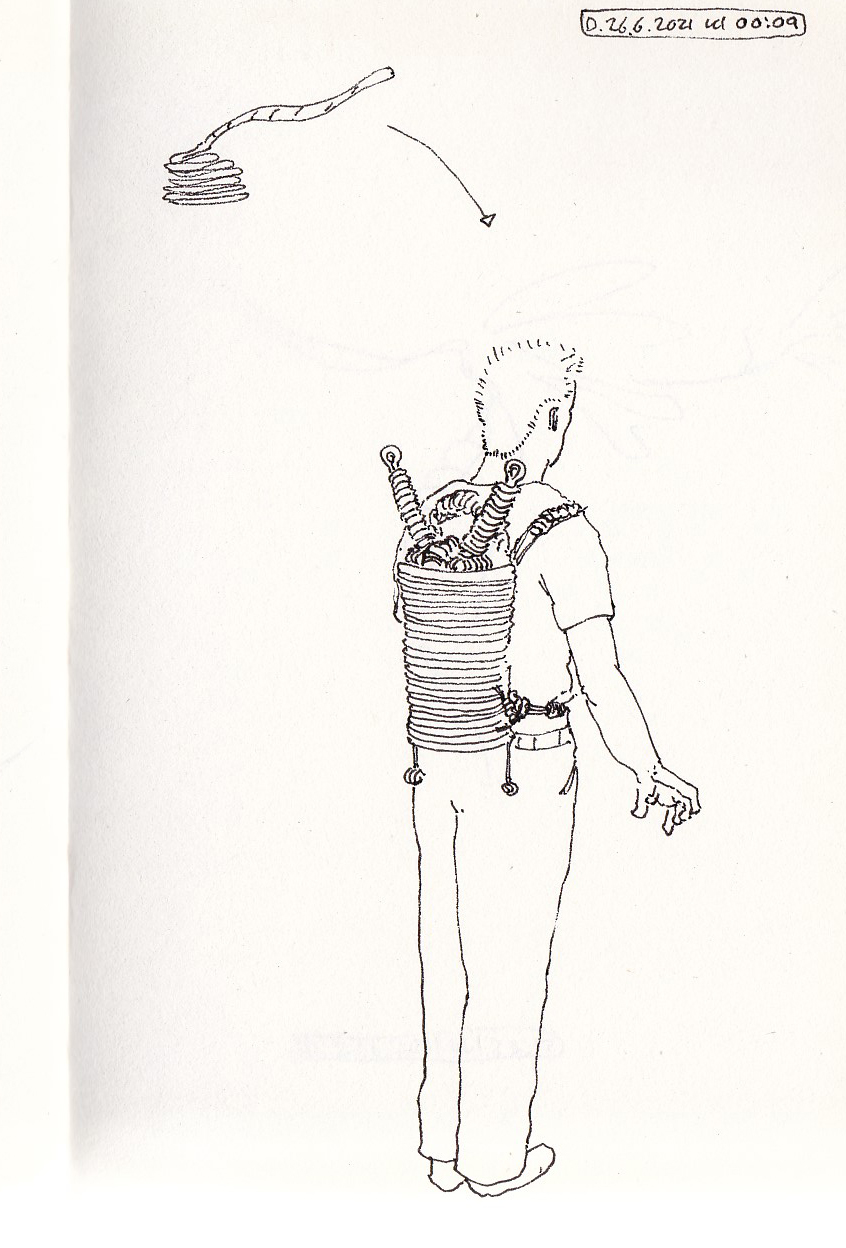 D.26.6.2021 kl 00:09